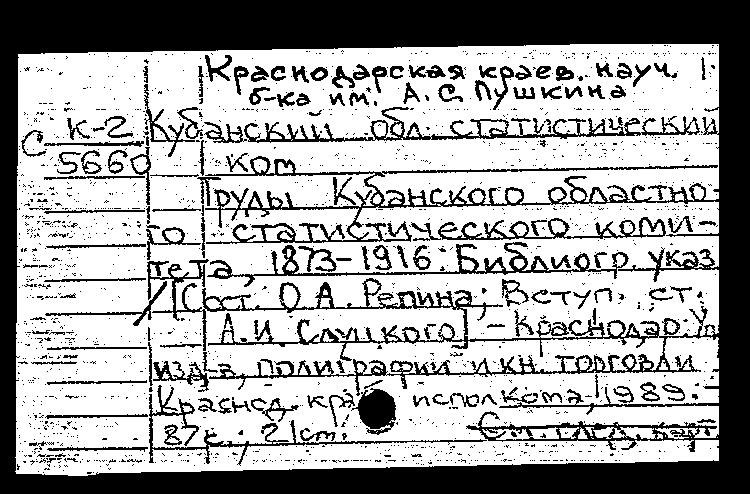 Краснодарская краев. науч.
б-ка им. А.С. Пушкина
С К-2 Кубанский обл. статистический
5660 ком
Труды Кубанского областно-
го статистического коми-
тета, 1873-1916: Библиогр. указ
/[Сост. О.А. Репина; Вступ. ст.
А.И. Слуцкого] - Краснодар: Уп
изд-в, полиграфии и кн. торговли
Краснод. края исполкома, 1989. -
87 с.; 21 см.
См. след. карт.